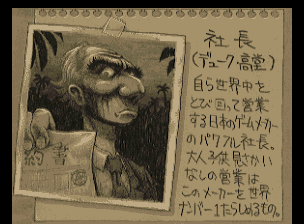 社長
(デューク高堂)
自ら世界中を
とび回って営業
する日本のゲームメーカー
のパワフル社長。
大人子供見さかい
なしの営業は
このメーカーを世界
ナンバー1たらしめるもの。
約書